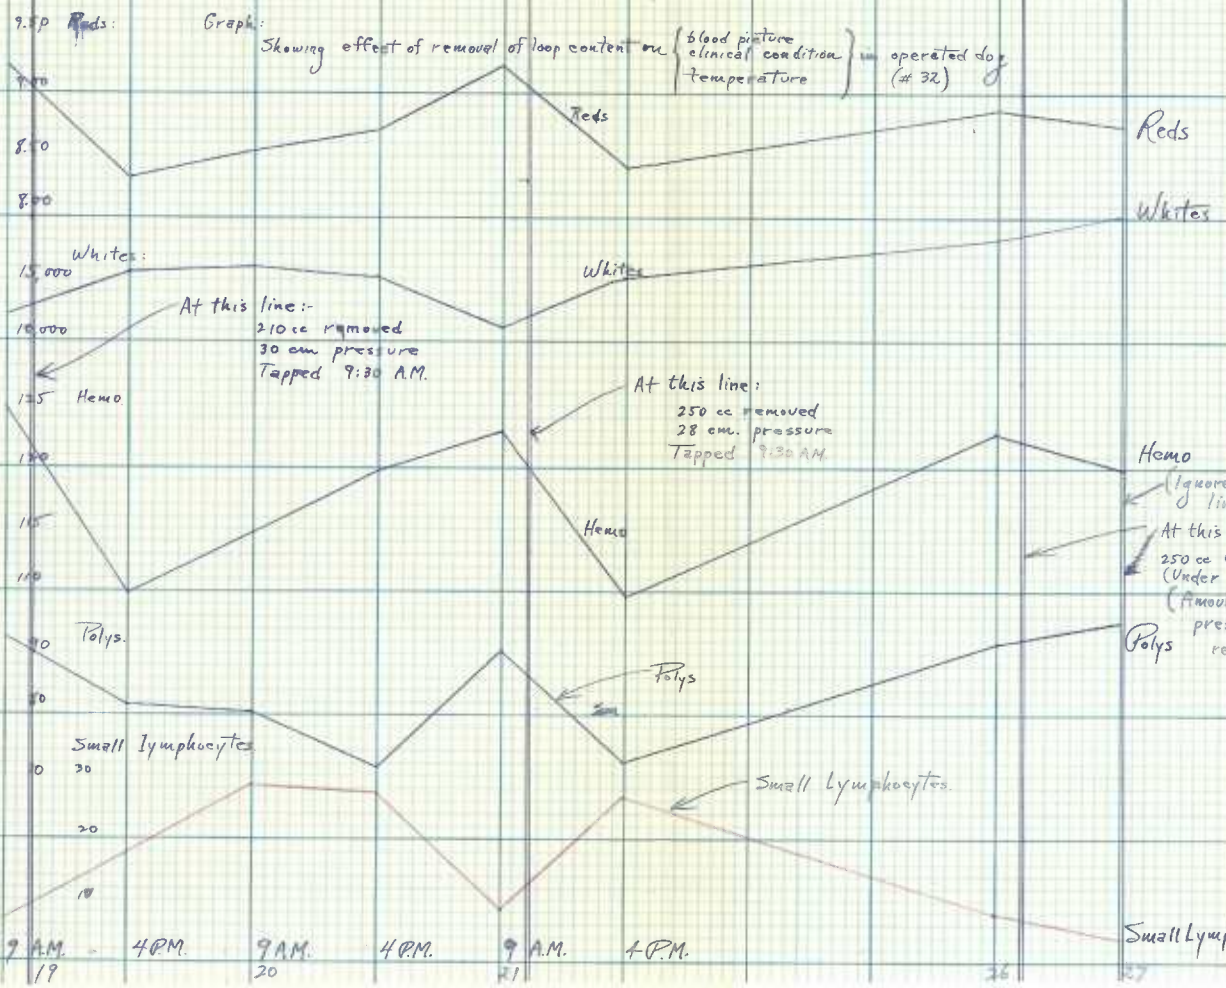 Reds:
Graph:
Showing effect of removal of loop content on { blood picture
clinical condition
temperature } operated dog
(# 32)
9.00
Reds
Reds
8.00
Whites
Whites:
15,000
Whites
At this line:-
10,000
210 cc removed
30 cm pressure
Tapped 9:30 A.M.
At this line:
250 cc removed
28 cm. pressure
Tapped 9:30 AM.
125 Hemo.
Hemo
120
(Ignore
115
Hemo
At this
250 cc
(Under
110
(Amou
pres
re
Polys.
90
Polys
Polys
80
Small lymphocytes
30
Small Lymphocytes.
20
10
Small Lymp
9 A.M. 4 P.M. 9 A.M. 4 P.M. 9 A.M. 4 P.M.
19 20 21 26 27